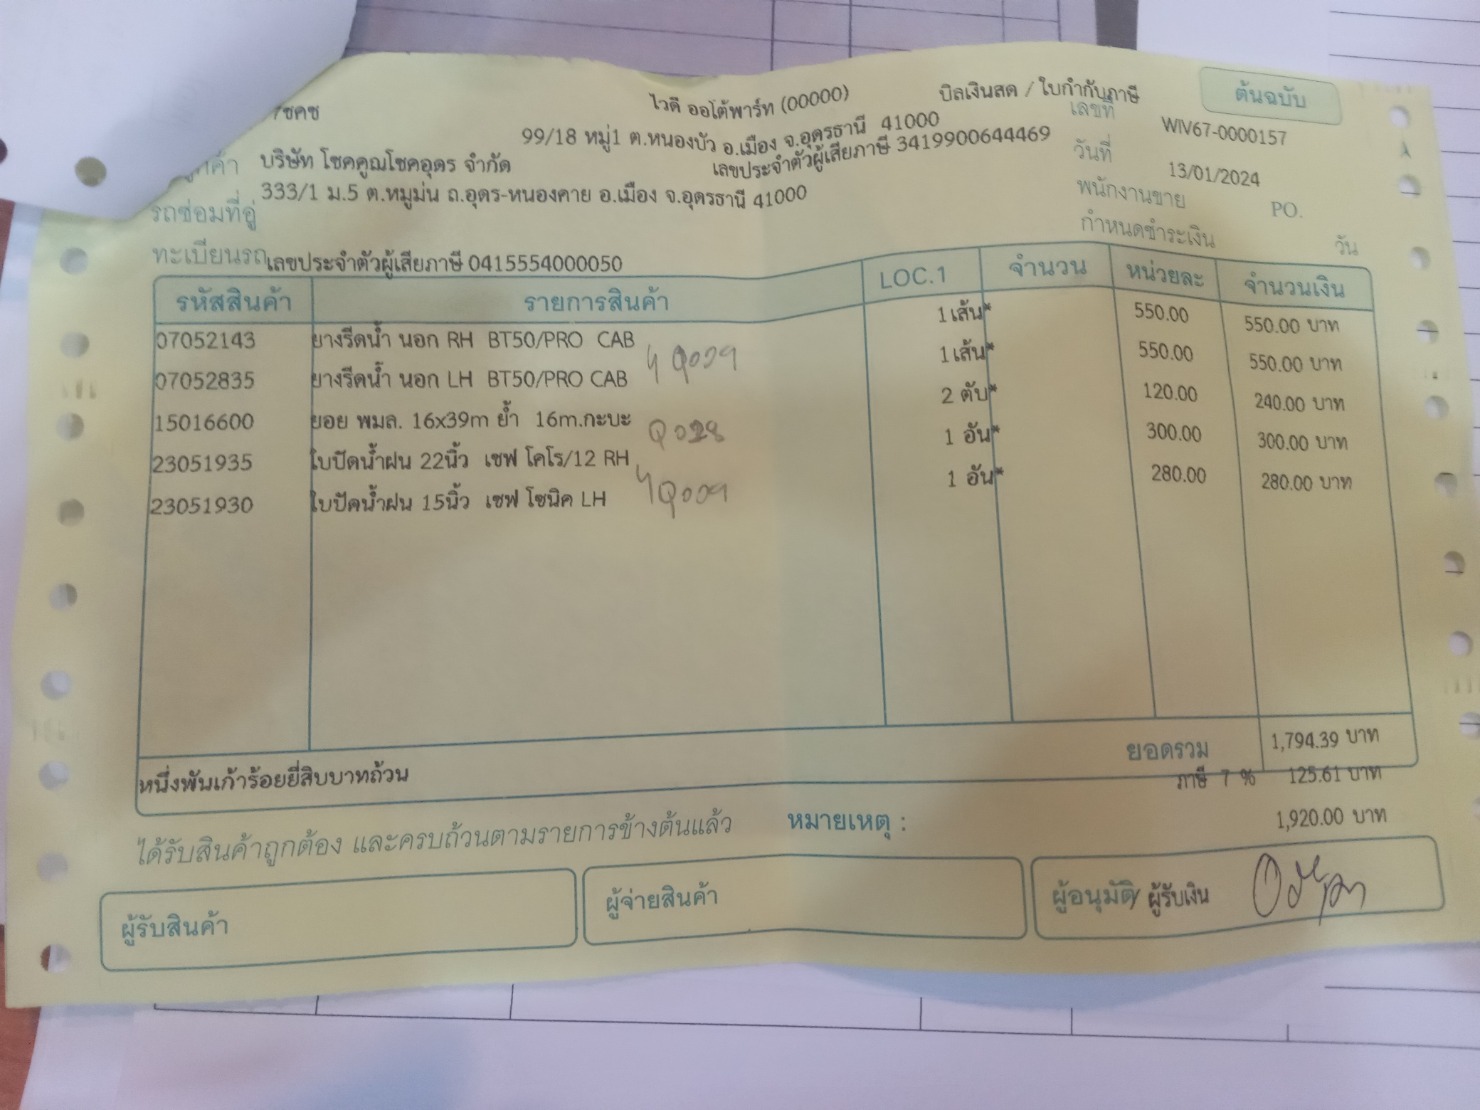 ไวดี ออโต้พาร์ท (00000) บิลเงินสด / ใบกำกับภาษี ต้นฉบับ
99/18 หมู่1 ต.หนองบัว อ.เมือง จ.อุดรธานี 41000 เลขที่ WIV67-0000157
เลขประจำตัวผู้เสียภาษี 3419900644469 วันที่ 13/01/2024
บริษัท โชคคูณโชคอุดร จำกัด พนักงานขาย PO.
333/1 ม.5 ต.หมูม่น ถ.อุดร-หนองคาย อ.เมือง จ.อุดรธานี 41000
รถซ่อมที่อู่ กำหนดชำระเงิน วัน
ทะเบียนรถ เลขประจำตัวผู้เสียภาษี 0415554000050
รหัสสินค้า รายการสินค้า LOC.1 จำนวน หน่วยละ จำนวนเงิน
07052143 ยางรีดน้ำ นอก RH BT50/PRO CAB 1 เส้น* 550.00 550.00 บาท
07052835 ยางรีดน้ำ นอก LH BT50/PRO CAB 1 เส้น* 550.00 550.00 บาท
15016600 ยอย พมล. 16x39m ย้ำ 16m.กะบะ Q028 2 ตับ* 120.00 240.00 บาท
23051935 ใบปัดน้ำฝน 22นิ้ว เชฟ โคโร/12 RH 1 อัน* 300.00 300.00 บาท
23051930 ใบปัดน้ำฝน 15นิ้ว เชฟ โซนิค LH 1 อัน* 280.00 280.00 บาท
ยอดรวม 1,794.39 บาท
หนึ่งพันเก้าร้อยยี่สิบบาทถ้วน ภาษี 7 % 125.61 บาท
ได้รับสินค้าถูกต้อง และครบถ้วนตามรายการข้างต้นแล้ว หมายเหตุ : 1,920.00 บาท
ผู้รับสินค้า ผู้จ่ายสินค้า ผู้อนุมัติ/ ผู้รับเงิน